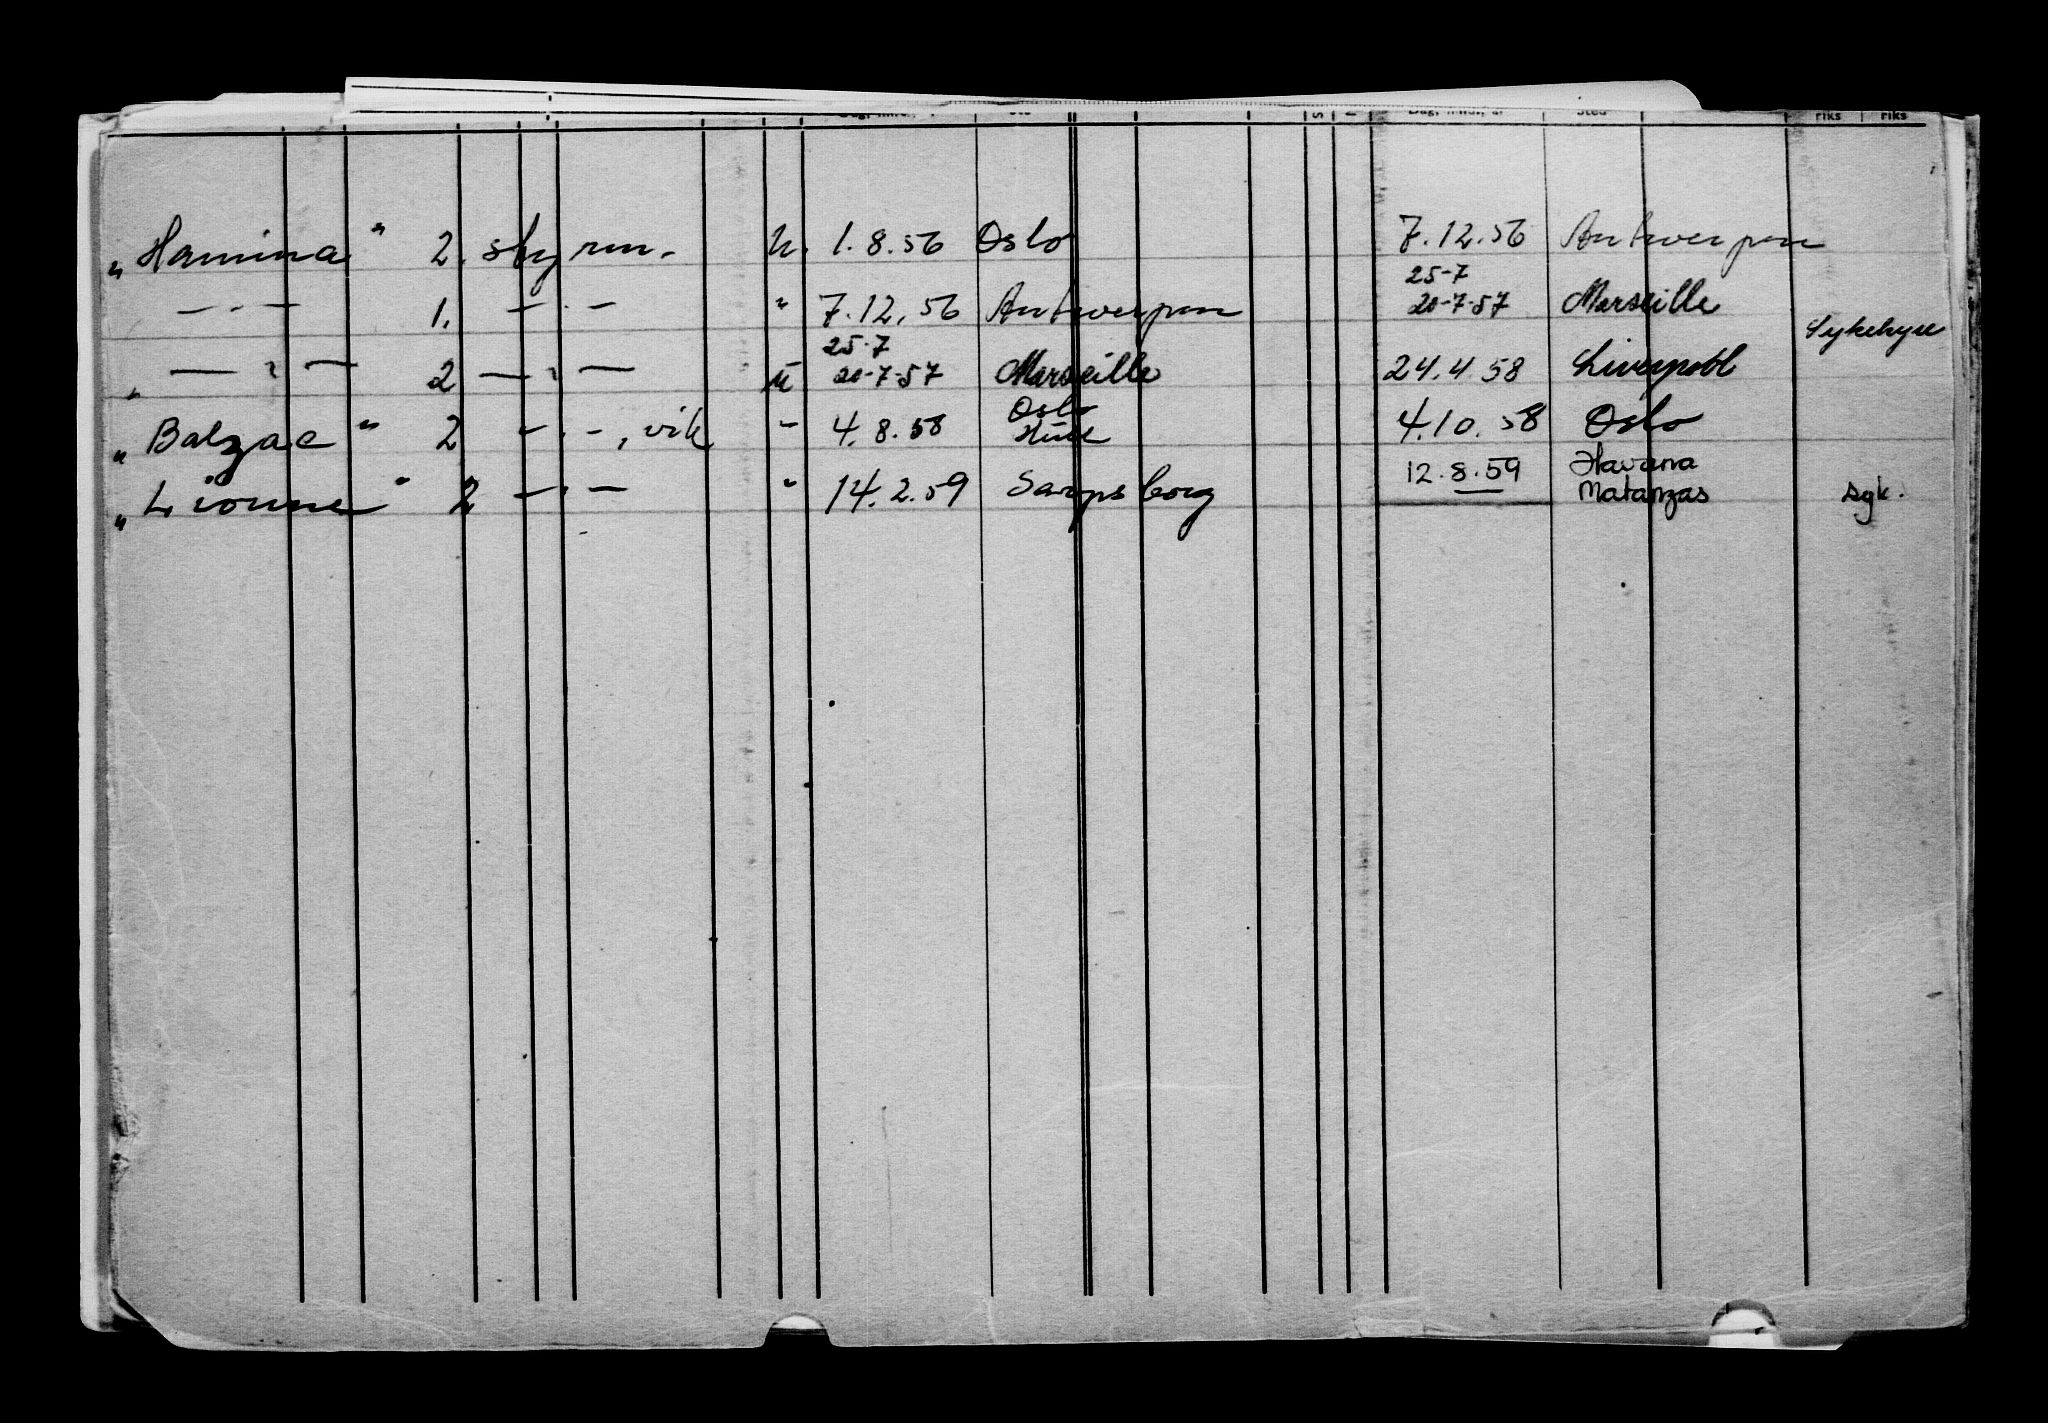 Sted riks riks
"Hamina" 2. styrm. U. 1.8.56 Oslo 7.12.56 Antwerpen
25-7
— " — 1. — " — " 7.12.56 Antwerpen 20-7-57 Marseille
25-7 Sykehyre
— " — 2 — " — U 20-7-57 Marseille 24.4.58 Liverpool
Oslo
"Balzac" 2 — " —, vik " 4.8.58 4.10.58 Oslo
12.8.59 Havana
"Lionne" 2 — " — " 14.2.59 Sarpsborg Matanzas syk.